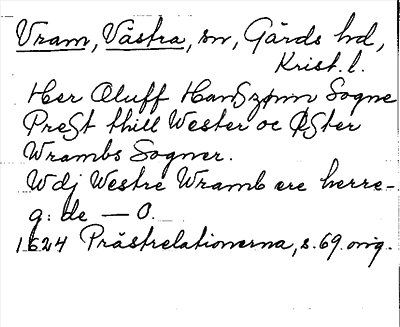 Vram, Västra, sn, Gärds hd,
Krist. l.
Her Oluff Hanszønn Sogne
Prest thill Wester oc Øster
Wrambs Sogner.
Wdj Westre Wramb ere herre-
g: de — O.
1624 Prästrelationerna, s. 69. orig.